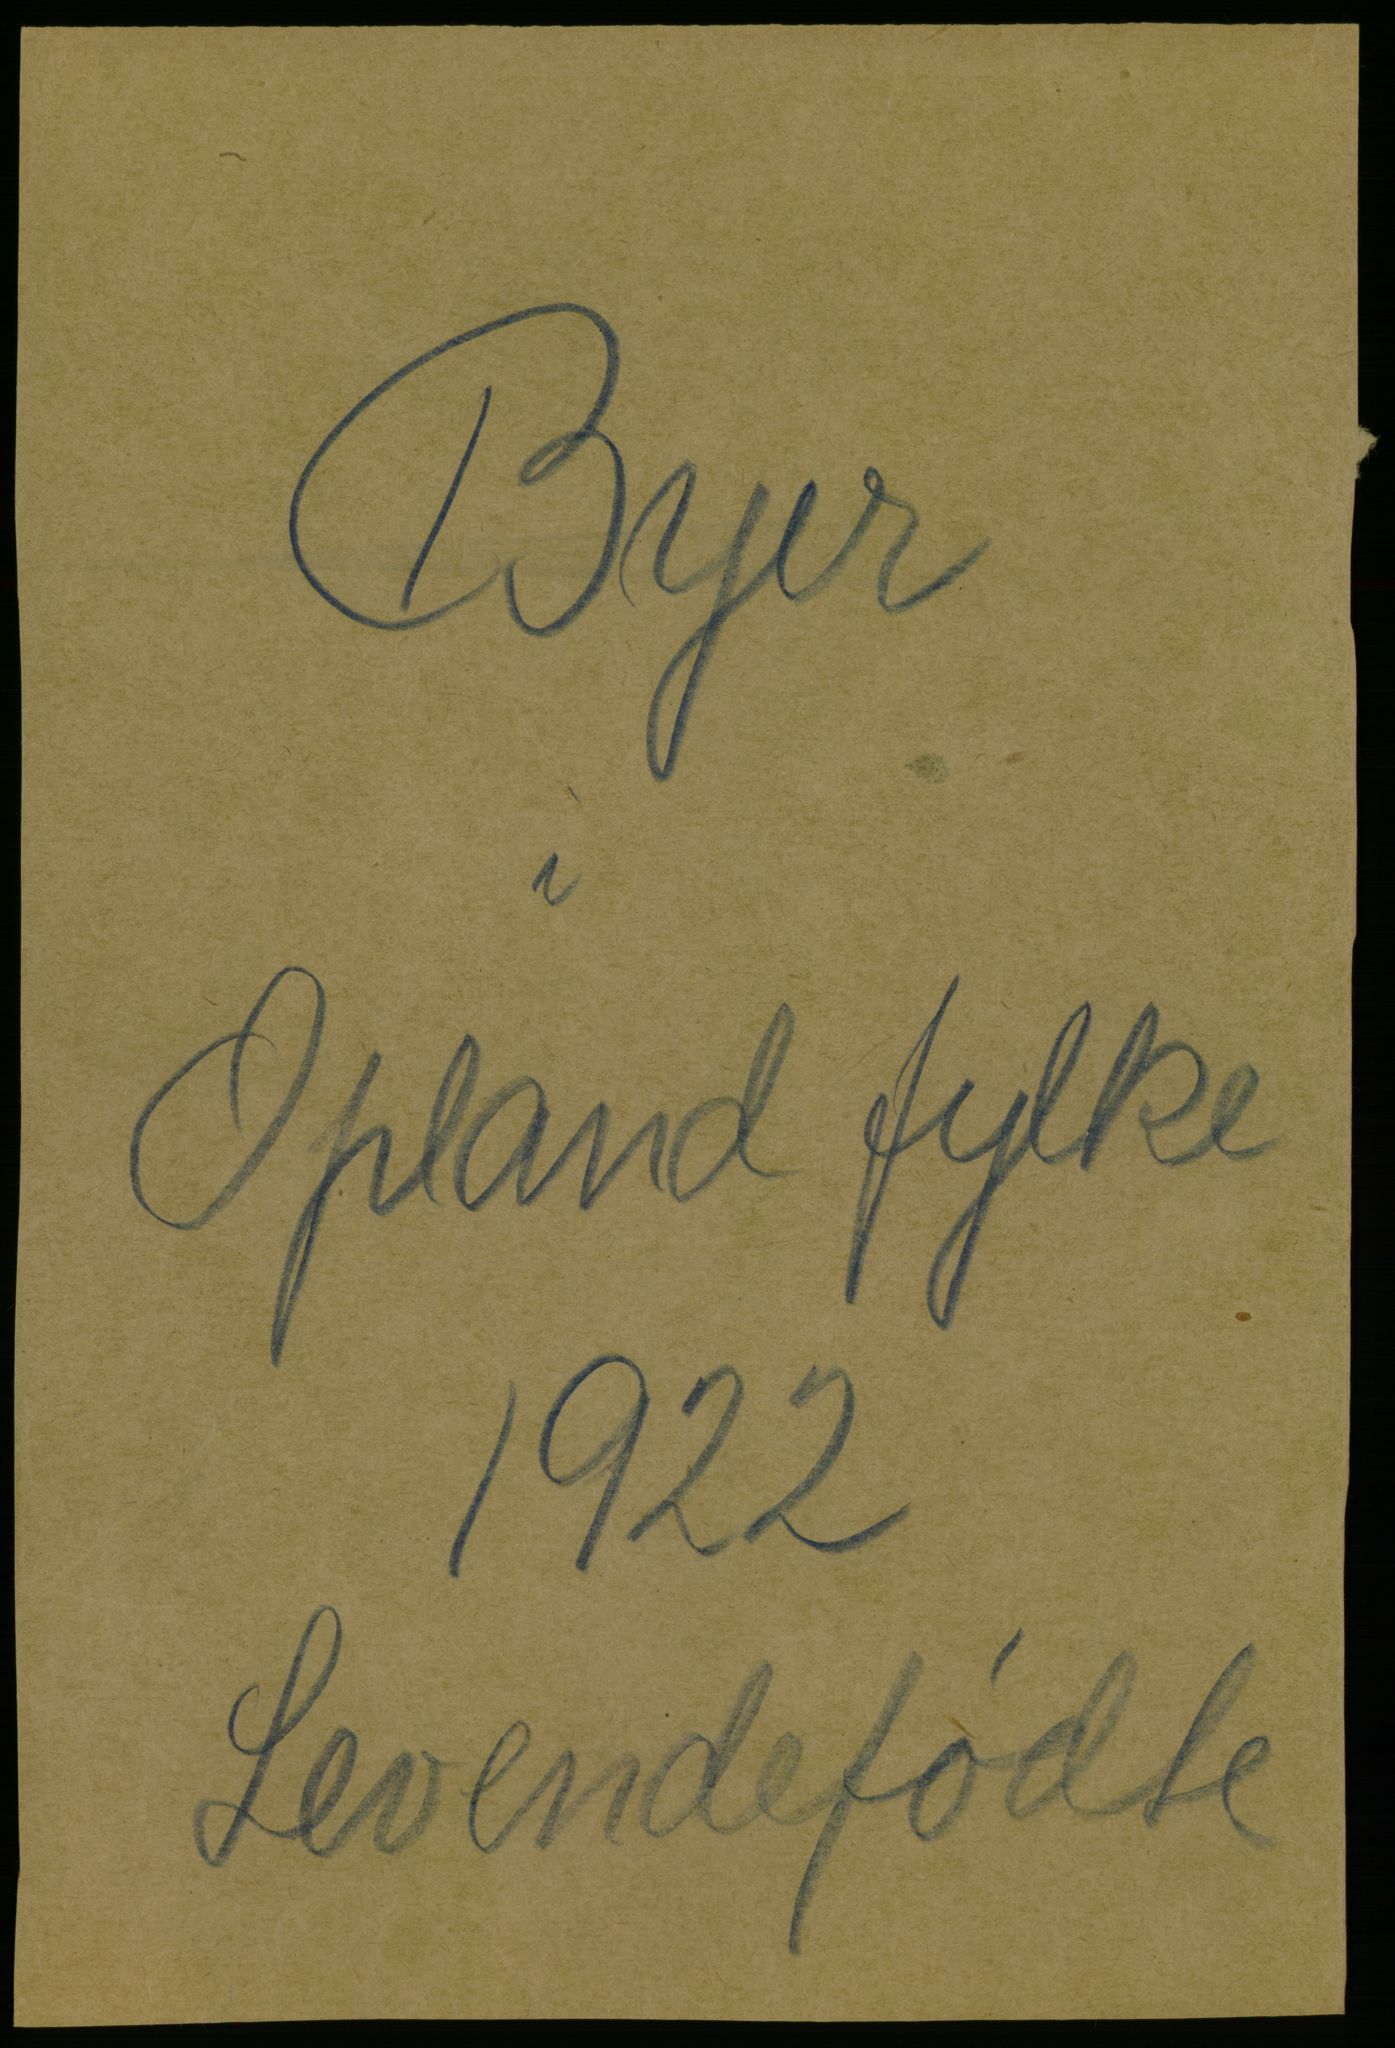 Byer
i
Opland fylke
1922
Levendefødte